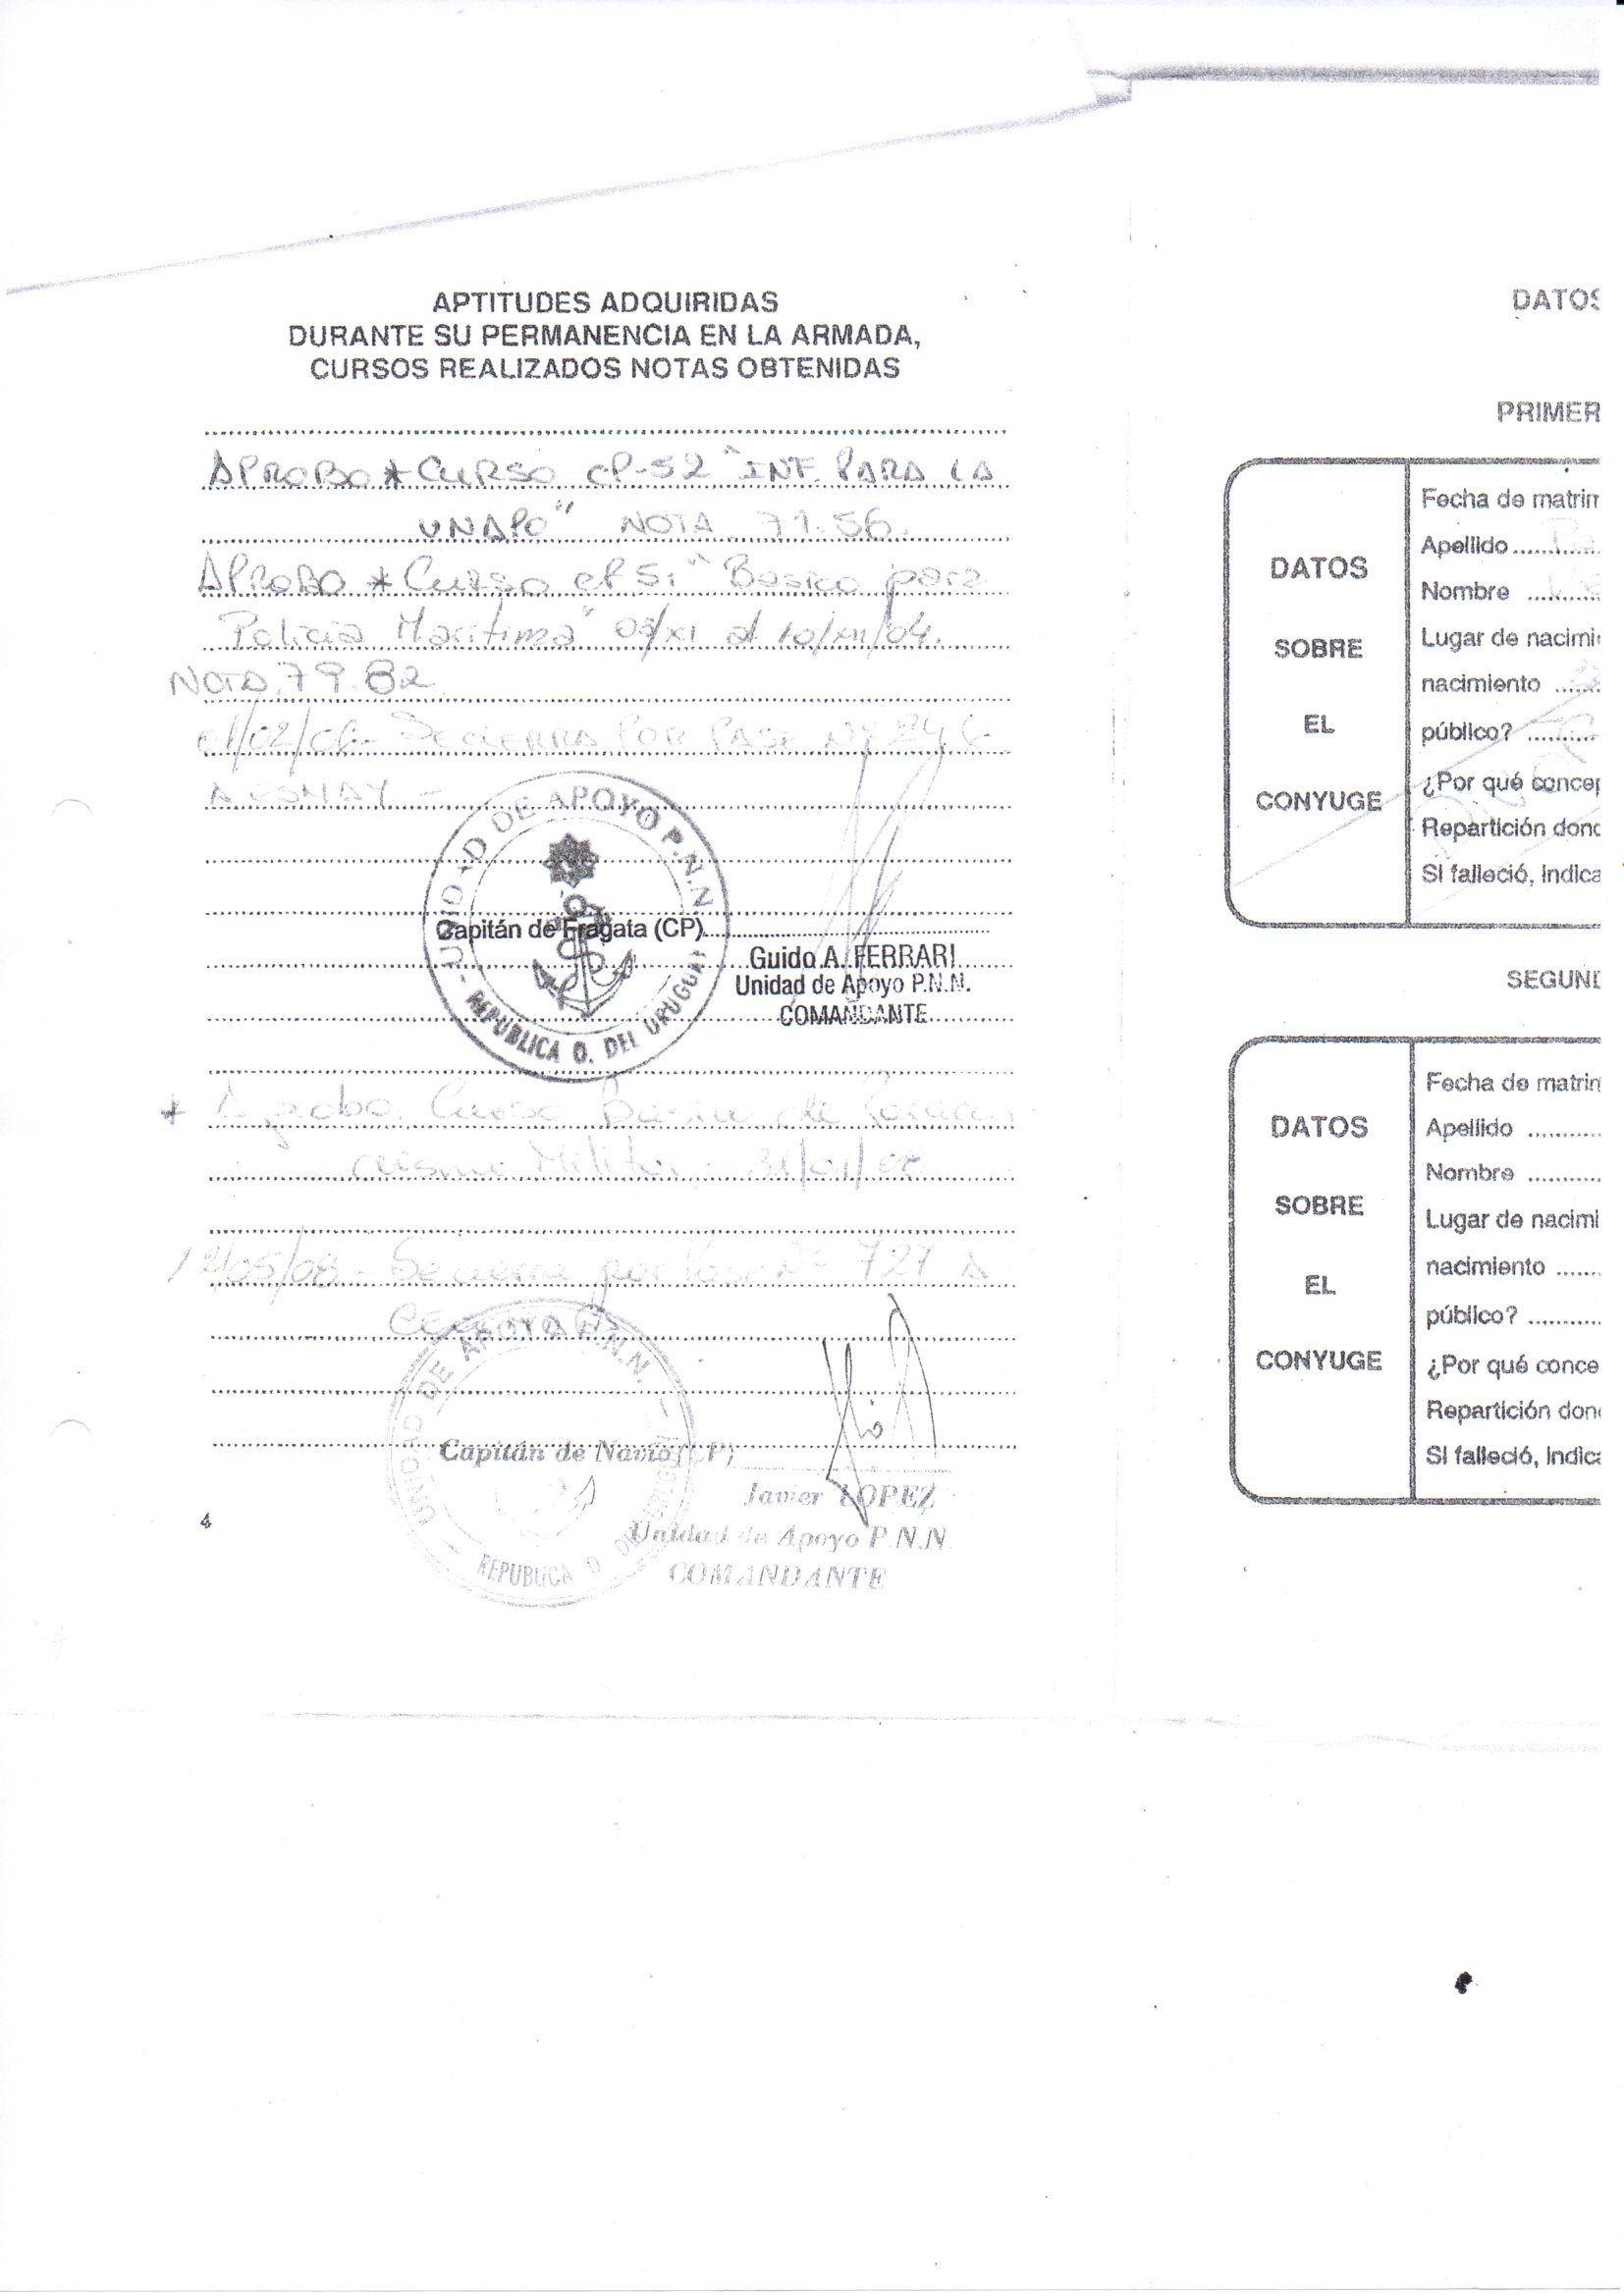 APTITUDES ADQUIRIDAS
DURANTE SU PERMANENCIA EN LA ARMADA,
CURSOS REALIZADOS NOTAS OBTENIDAS
APROBO * CURSO CP-52 "INF. PARA LA
UNAPO" NOTA 71.56.
APROBO * Curso CP 51 "Basico para
Policia Maritima" 03/XI al 10/XII/04.
NOTA 79.82
01/02/06- SE CIERRA POR PASE Nº
A ESNAY -
UNIDAD DE APOYO P.N.N
- REPUBLICA O. DEL URUGUAY
Capitán de Fragata (CP)
Guido A. FERRARI
Unidad de Apoyo P.N.N.
COMANDANTE
* Aprobo Curso Basico de
Militar 31/01/
12/05/08- Se cierra por Pase Nº 727 A
UNIDAD DE APOYO P.N.N. -
- REPUBLICA O DEL URUGUAY
Capitán de Navío (CP)
Javier LOPEZ
Unidad de Apoyo P.N.N
COMANDANTE
4
DATOS
PRIMER
DATOS
SOBRE
EL
CONYUGE
Fecha de matrim
Apellido
Nombre
Lugar de nacimi
nacimiento
público?
¿Por qué concep
Repartición donc
Si falleció, indica
SEGUND
DATOS
SOBRE
EL
CONYUGE
Fecha de matrim
Apellido
Nombre
Lugar de nacimi
nacimiento
público?
¿Por qué conce
Repartición don
Si falleció, indica